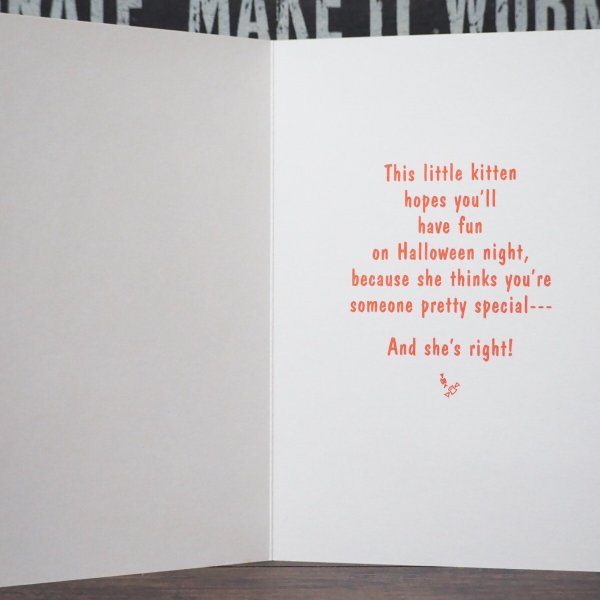 MAKE IT WORK
This little kitten
hopes you'll
have fun
on Halloween night,
because she thinks you're
someone pretty special---
And she's right!